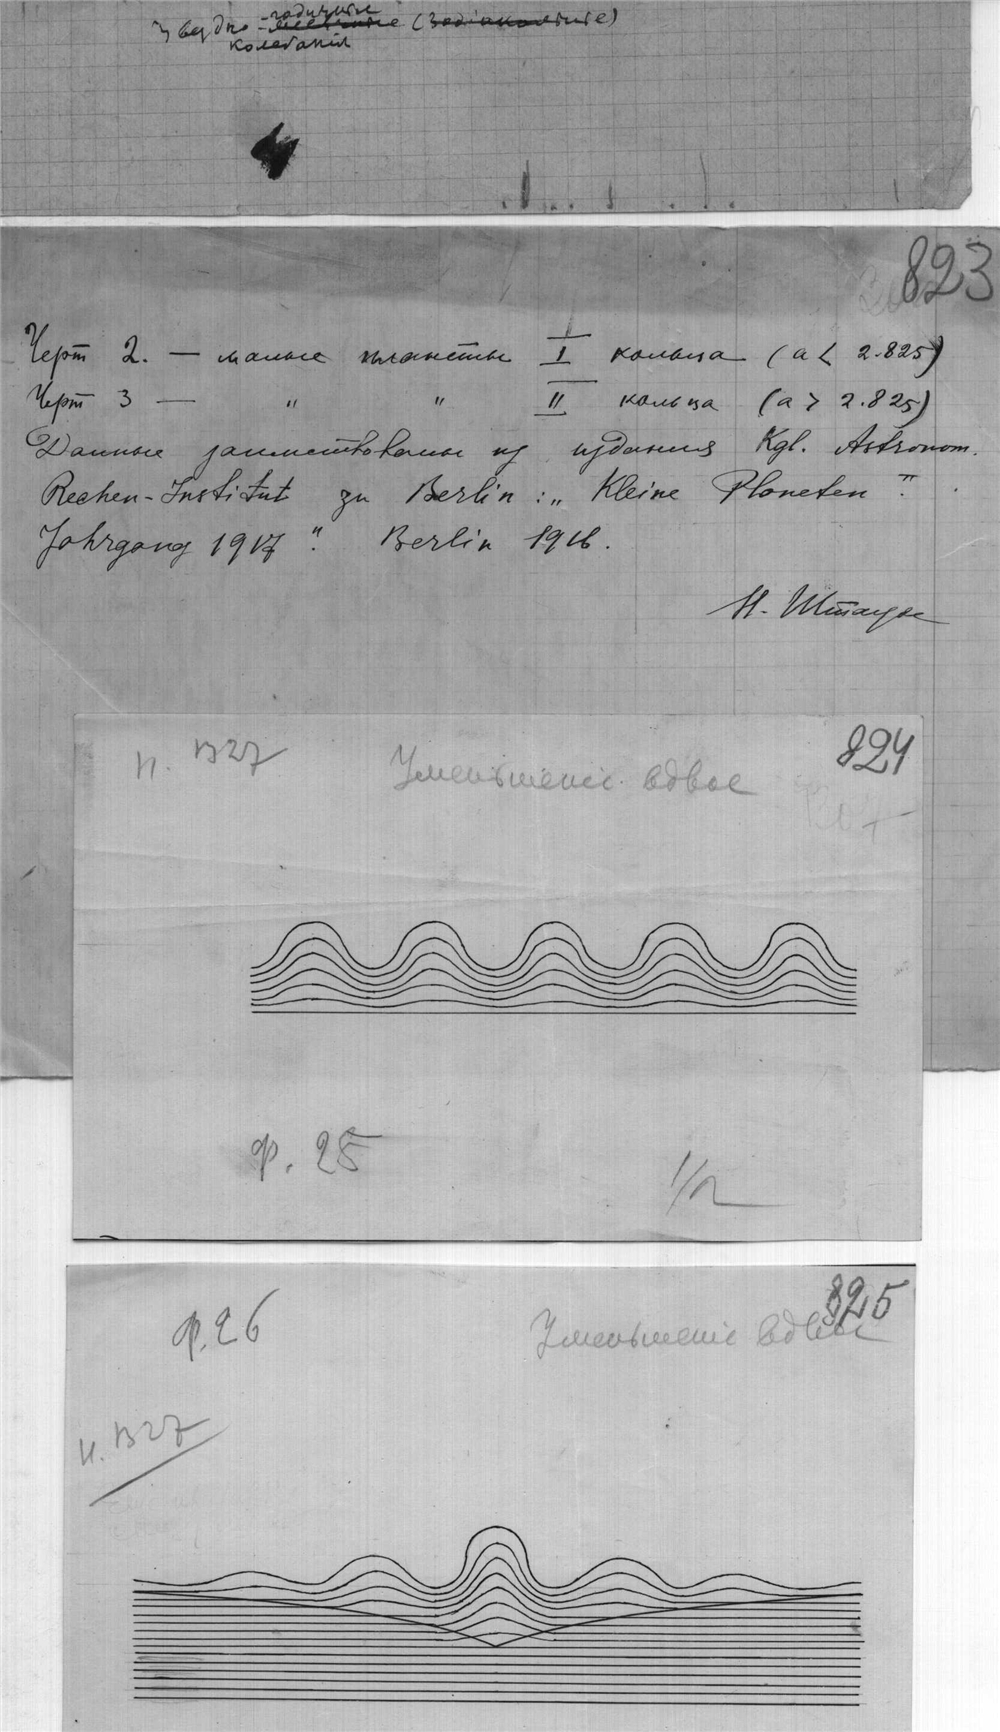 Звездно-годичные (Зодіакальные)
колебанія
823
Черт 2. — малые планеты I кольца (a < 2.825)
Черт 3 — " " II кольца (a > 2.825)
Данные заимствованы из издания Kgl. Astronom.
Rechen-Institut zu Berlin: „Kleine Planeten".
Jahrgang 1917". Berlin 1916.
Н. Штауде
И. В27 Уменьшеніе вдвое 824
Ф. 25 1/2
Ф. 26 Уменьшеніе вдвое 825
И. В27